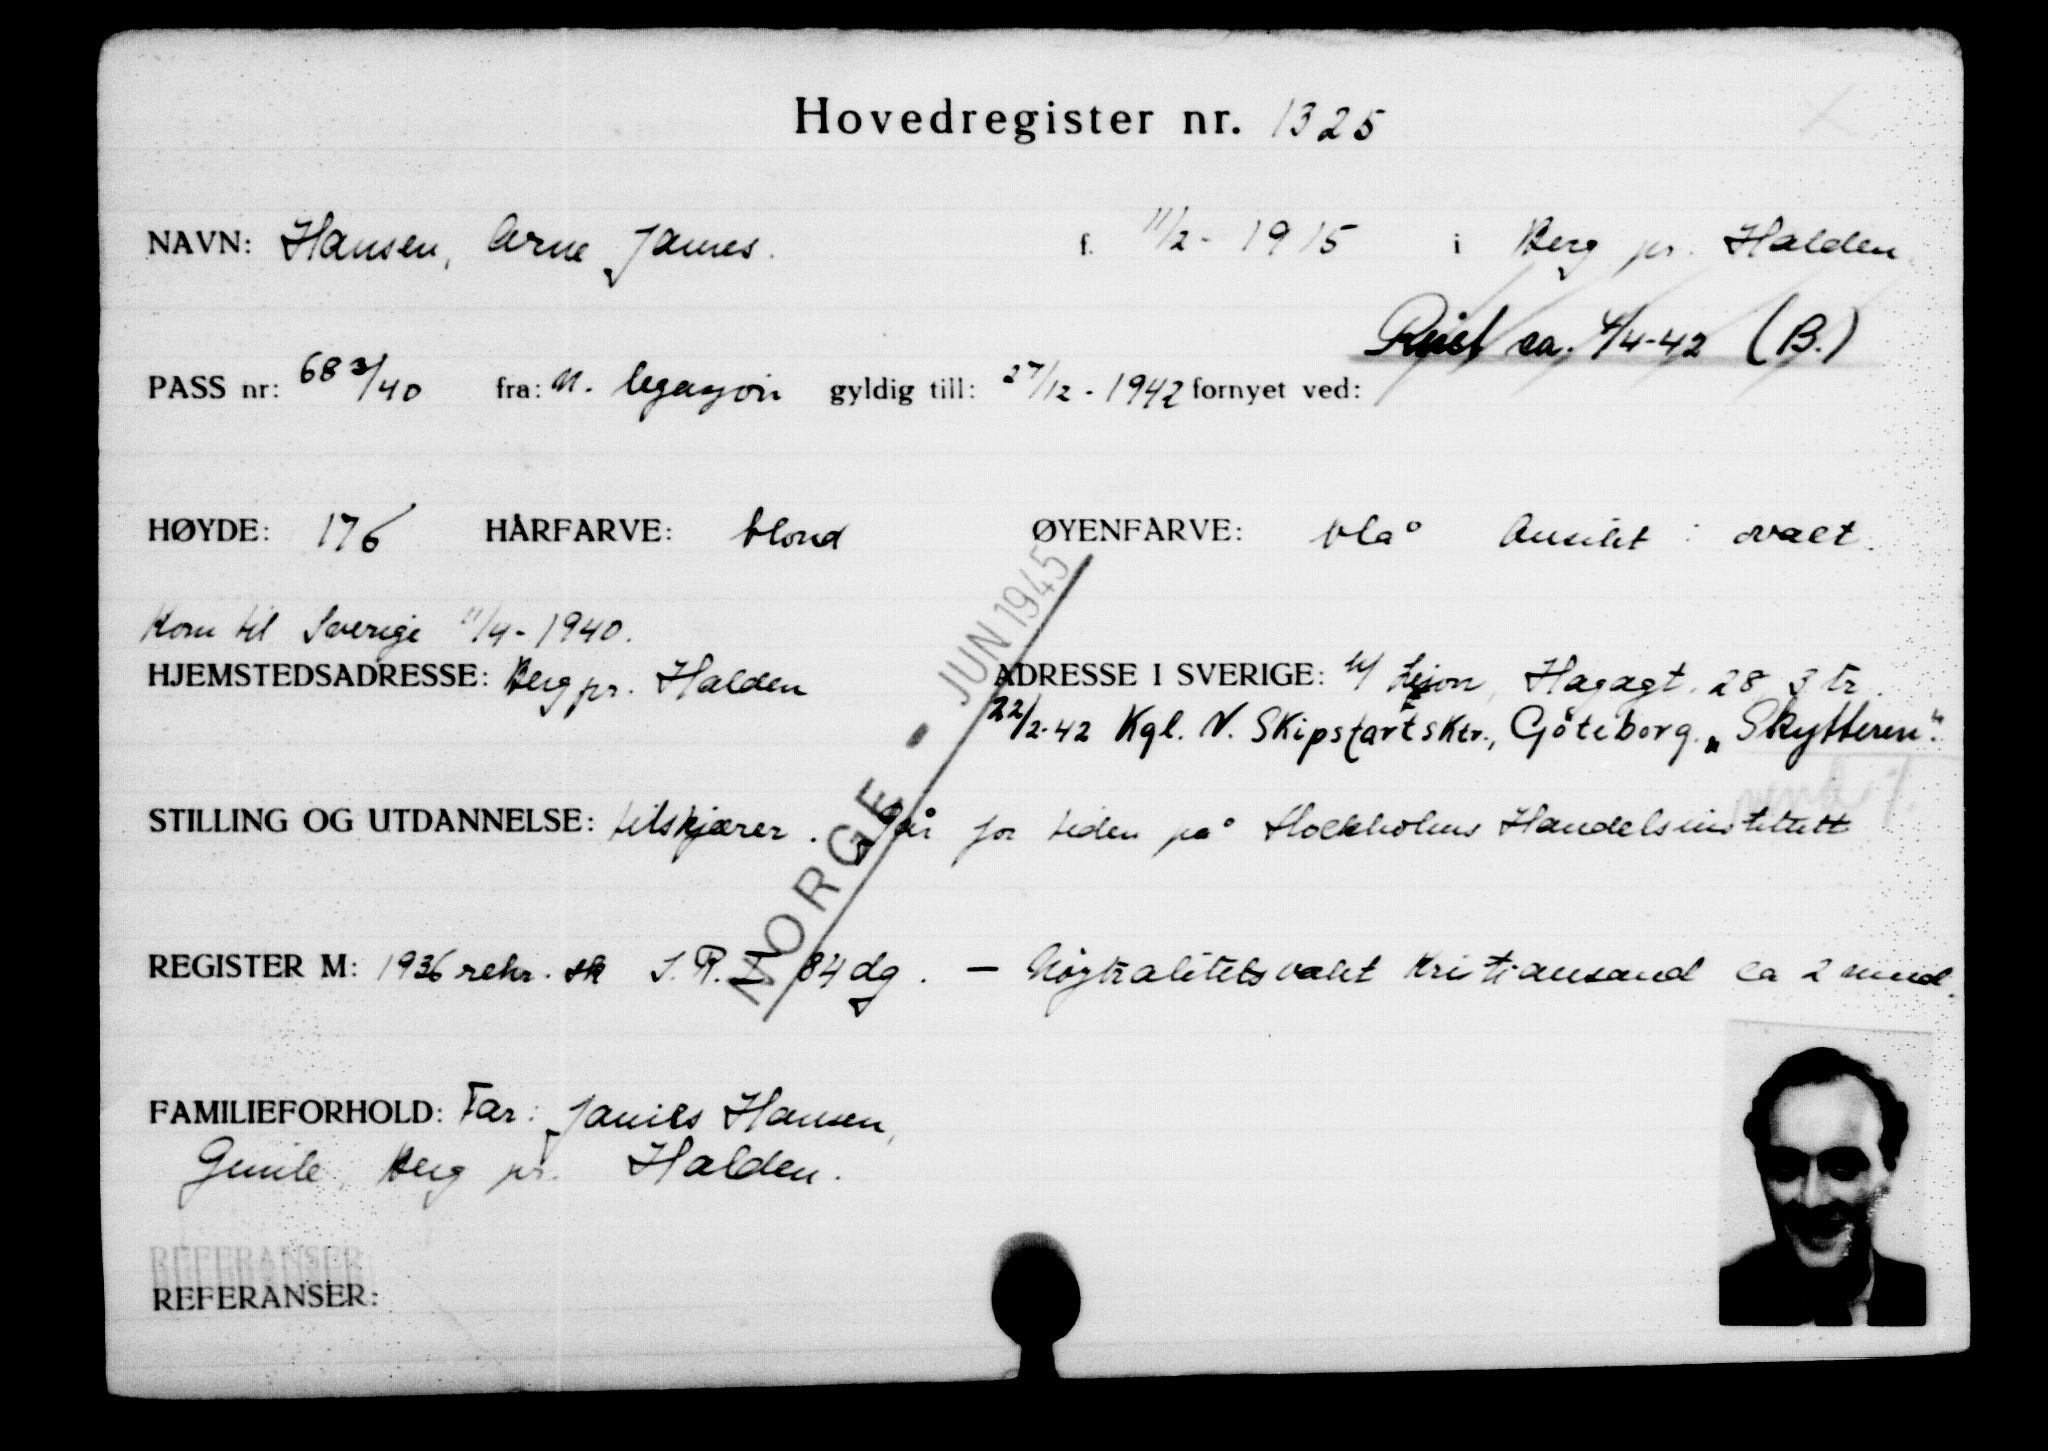 Hovedregister nr. 1325
NAVN: Hansen, Arne James. f. 11/2 - 1915 i Berg pr. Halden.
Reist ca. 4/4-42 (B.)
PASS nr: 683/40 fra: N. legasjon gyldig till: 27/12 - 1942 fornyet ved:
HØYDE: 176 HÅRFARVE: blond ØYENFARVE: blå Ansikt: ovalt.
Kom til Sverige 11/4 - 1940.
HJEMSTEDSADRESSE: Berg pr. Halden ADRESSE I SVERIGE: Hagagt. 28 3 tr.
22/2-42 Kgl. N. Skipsfartsktr., Göteborg. „Skytteren".
STILLING OG UTDANNELSE: tilskjærer. Går for tiden på Stockholms Handelsinstitutt
REGISTER M: 1936 rekr. sk I. R. I 84 dg. — Nøytralitetsvakt Kristiansand ca 2 mnd.
FAMILIEFORHOLD: Far: James Hansen,
Berg pr. Halden.
REFERANSER:
REFERANSER:
NORGE - JUN 1945